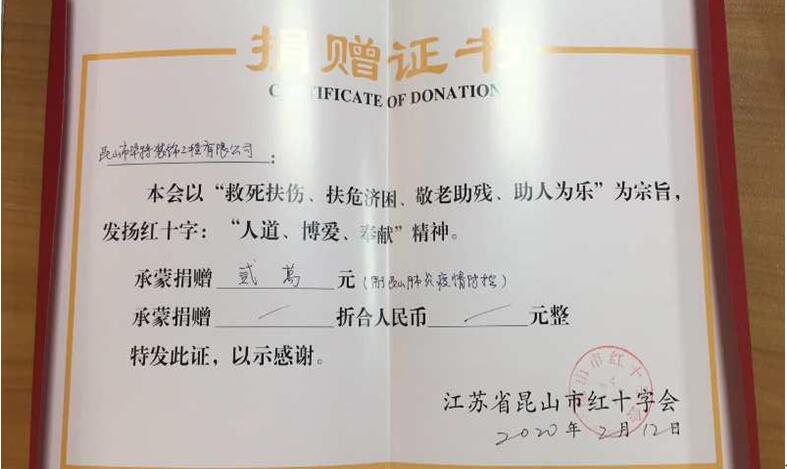 捐赠证书
CERTIFICATE OF DONATION
昆山市华特装饰工程有限公司:
本会以“救死扶伤、扶危济困、敬老助残、助人为乐”为宗旨，
发扬红十字：“人道、博爱、奉献”精神。
承蒙捐赠 贰萬 元(用昆山肺炎疫情防控)
承蒙捐赠 / 折合人民币 / 元整
特发此证，以示感谢。
江苏省昆山市红十字会
2020年2月12日
昆山市红十字会